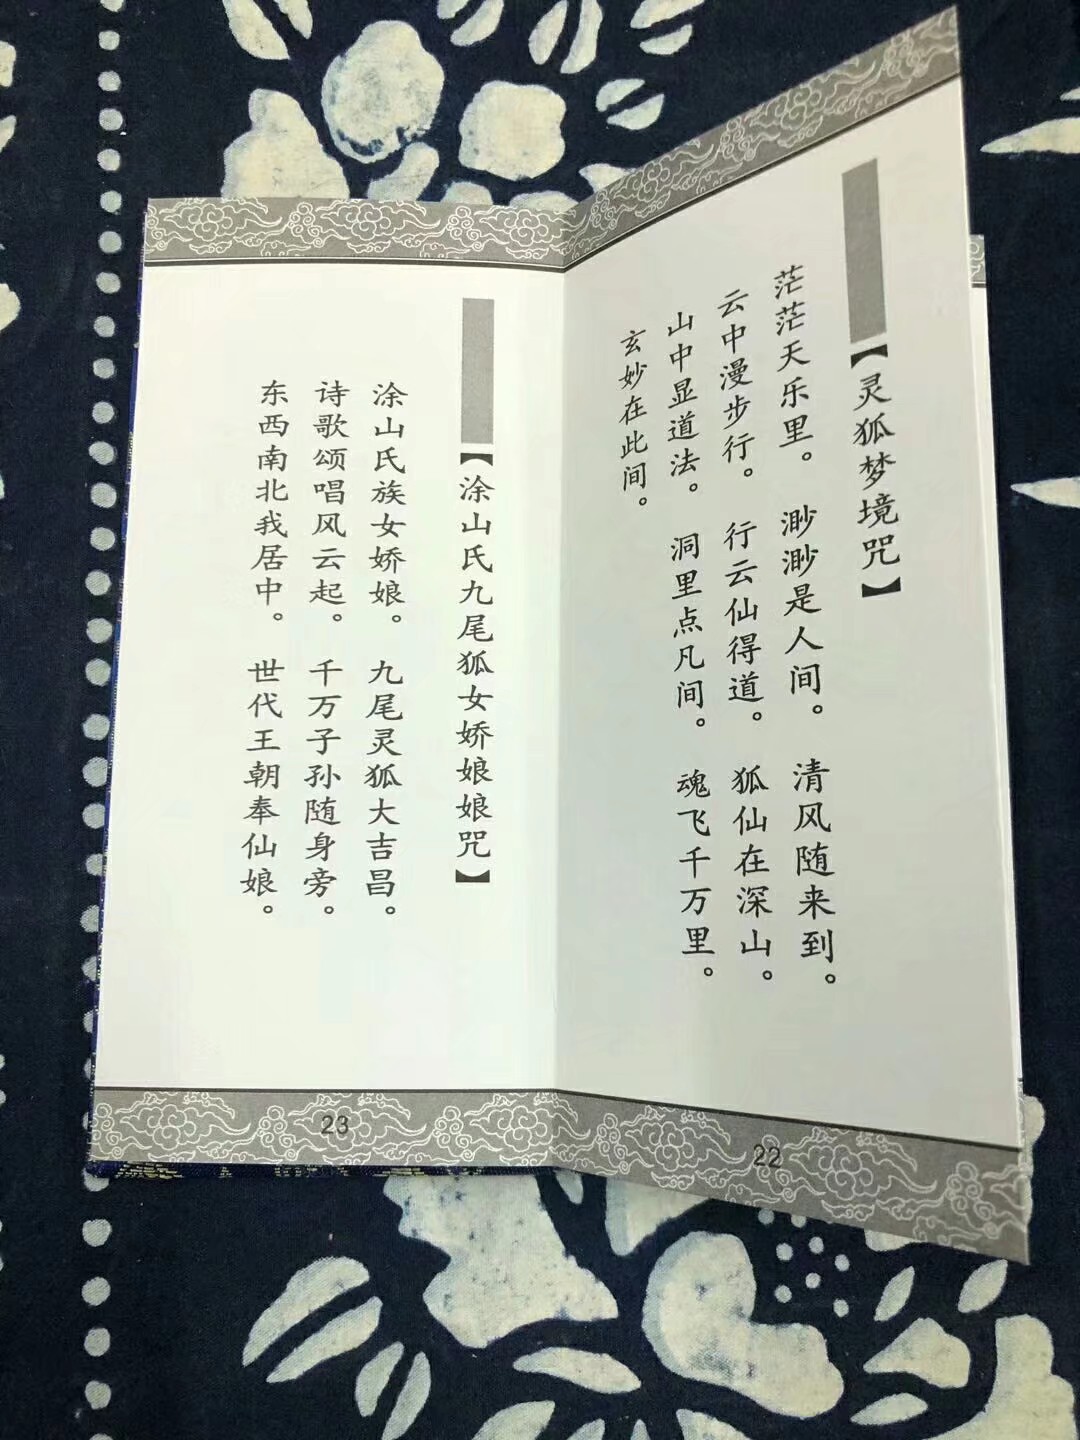 【灵狐梦境咒】
茫茫天乐里。 渺渺是人间。 清风随来到。
云中漫步行。 行云仙得道。 狐仙在深山。
山中显道法。 洞里点凡间。 魂飞千万里。
玄妙在此间。
22
【涂山氏九尾狐女娇娘娘咒】
涂山氏族女娇娘。 九尾灵狐大吉昌。
诗歌颂唱风云起。 千万子孙随身旁。
东西南北我居中。 世代王朝奉仙娘。
23